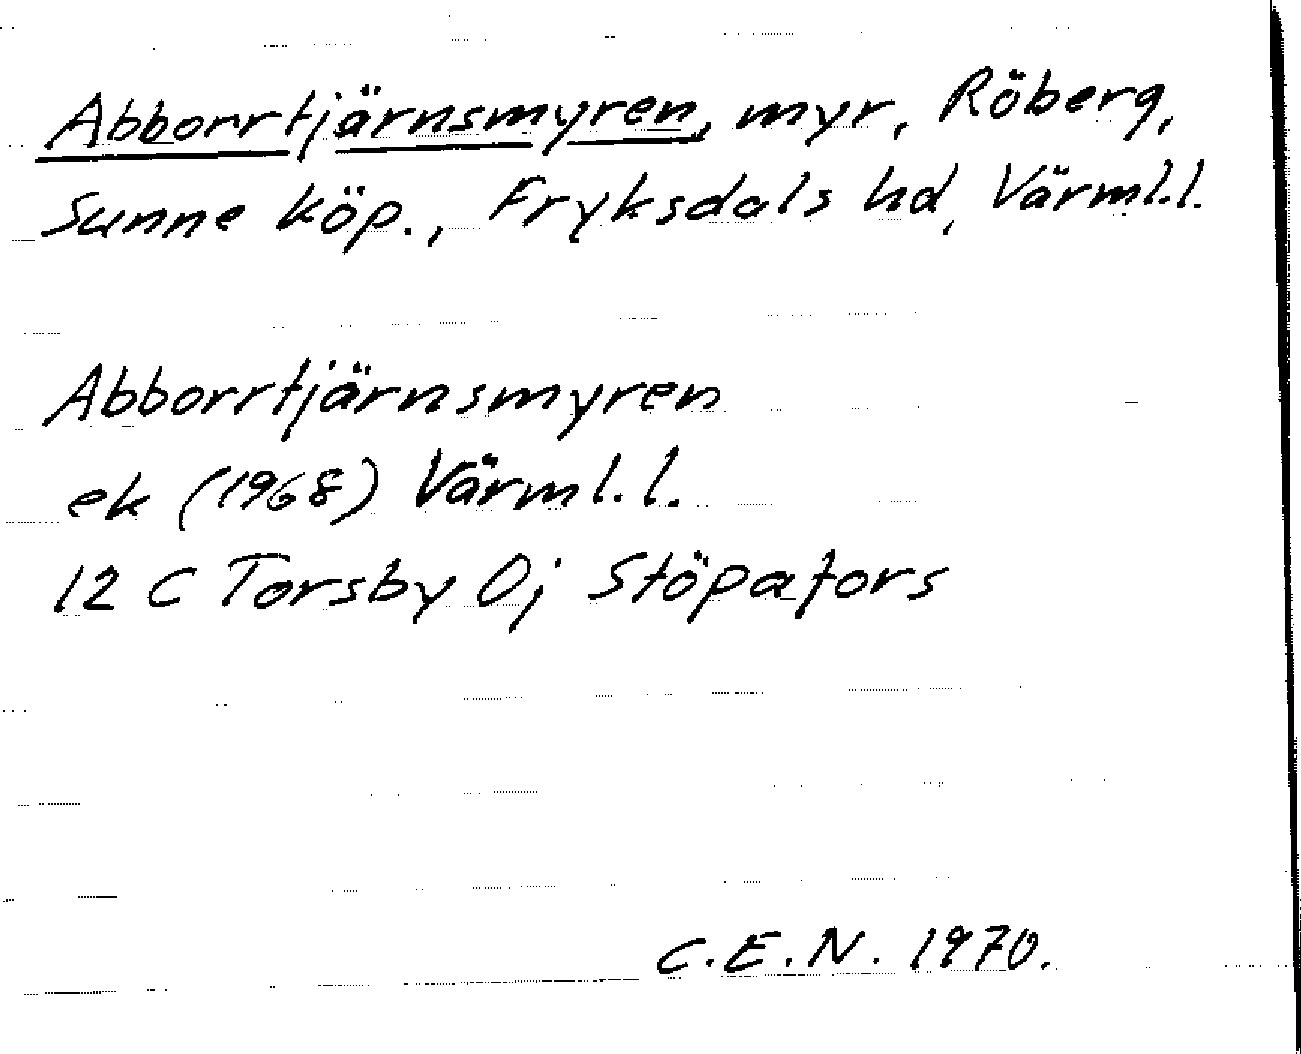 Abborrtjärnsmyren, myr, Röberg,
Sunne köp., Fryksdals hd, Värml.l.
Abborrtjärnsmyren
ek (1968) Värml.l.
12 C Torsby 0j Stöpafors
C.E.N. 1970.